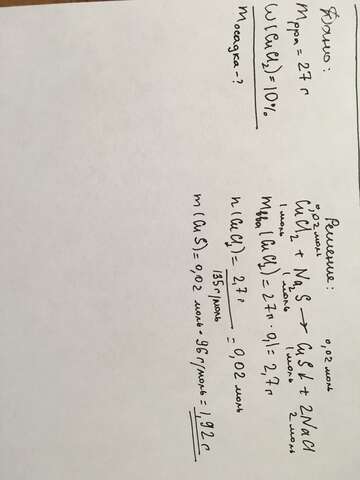 Дано:
m р-ра = 27 г
W(CuCl2) = 10%
m осадка - ?
Решение:
0,02 моль 0,02 моль
CuCl2 + Na2S → CuS↓ + 2NaCl
1 моль 1 моль 1 моль 2 моль
m в-ва (CuCl2) = 27 г · 0,1 = 2,7 г
n(CuCl2) = 2,7 г / 135 г/моль = 0,02 моль
m(CuS) = 0,02 моль · 96 г/моль = 1,92 г